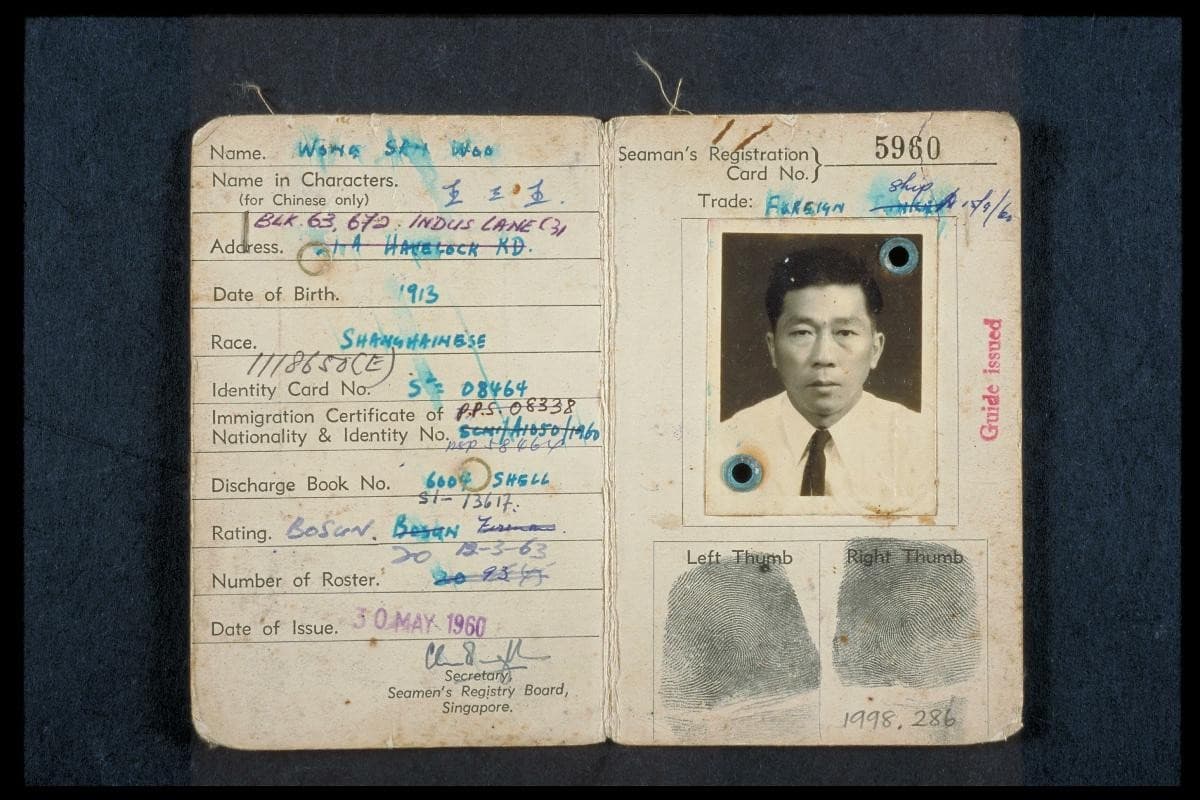 Name. WONG SAN WOO
Name in Characters.
(for Chinese only) 王 三 五.
BLK. 63, 672. INDUS LANE (3)
Address. 1. A HAVELOCK RD.
Date of Birth. 1913
Race. SHANGHAINESE
1118650(E)
Identity Card No. S= 08464
Immigration Certificate of P.P.S. 08338
Nationality & Identity No. SCNI/A1050/1960
Discharge Book No. 6604 SHELL
SI- 13617.
Rating. BOSUN. BOSUN
20 12-3-63
Number of Roster. 20 93
Date of Issue. 30 MAY 1960
Secretary,
Seamen's Registry Board,
Singapore.
Seaman's Registration } 5960
Card No.
ship
Trade: FOREIGN
Guide issued
Left Thumb Right Thumb
1998.286